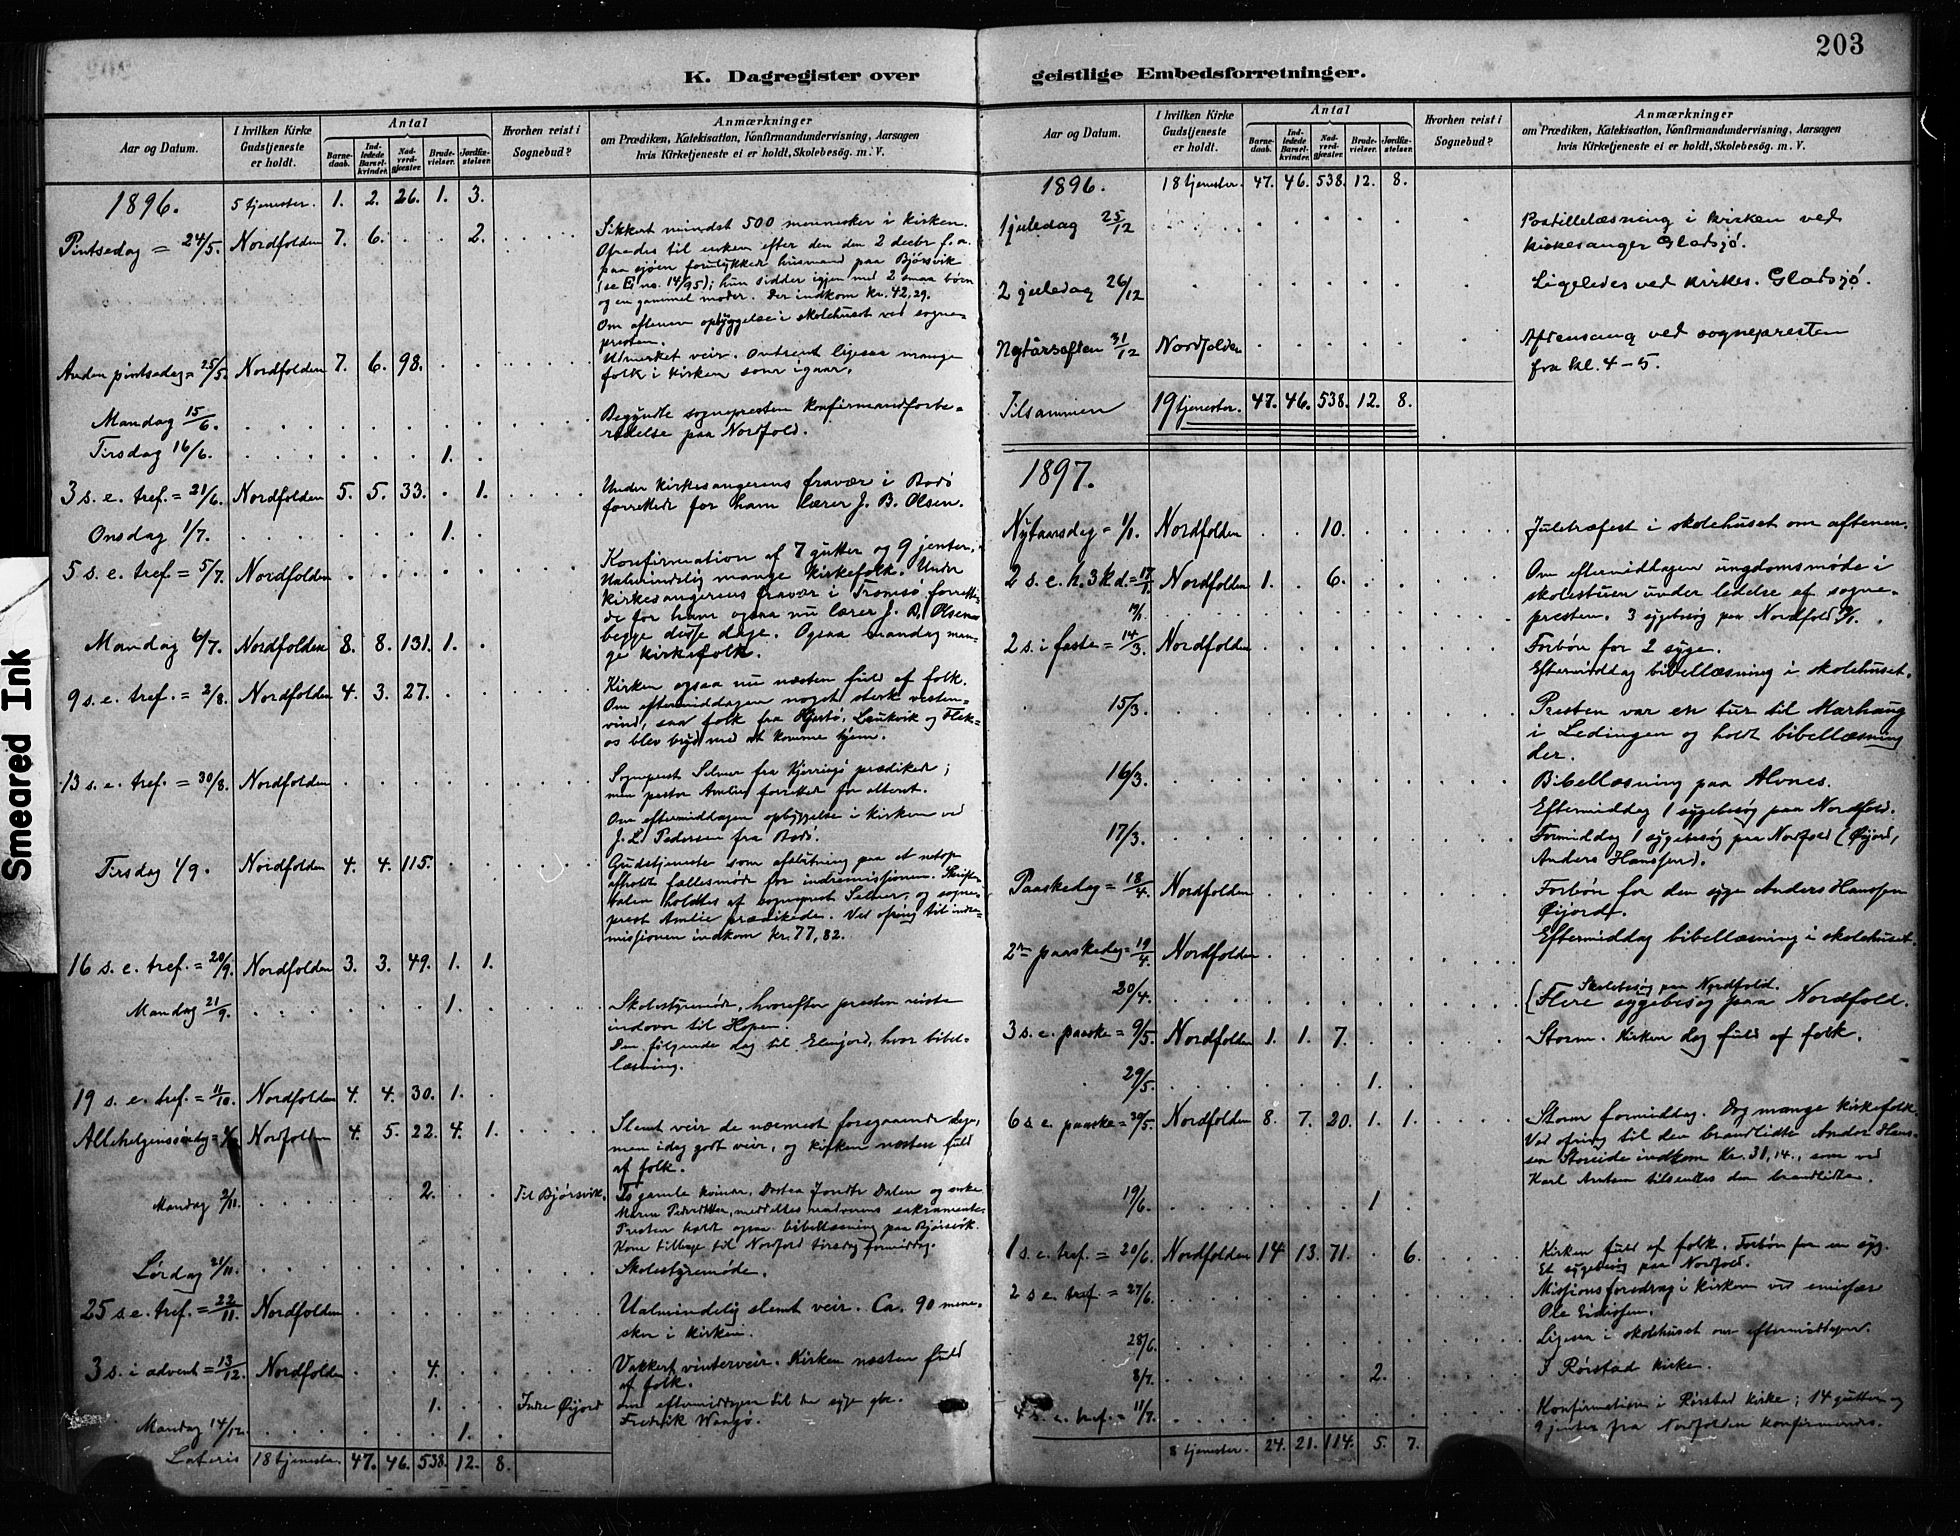 203
K. Dagregister over geistlige Embedsforretninger.
Aar og Datum. I hvilken Kirke Gudstjeneste er holdt. Antal Barnedaab. Indledede Barselkvinder. Nadverdgjæster. Brudevielser. Jordfæstelser. Hvorhen reist i Sognebud? Anmærkninger om Prædiken, Katekisation, Konfirmandundervisning, Aarsagen hvis Kirketjeneste ei er holdt, Skolebesög. m. V.
1896. 5 tjenester. 1. 2. 26. 1. 3.
Pintsedag = 24/5. Nordfolden 7. 6. . . 2. Sikkert mindst 500 mennesker i kirken.
Ofredes til enken efter den den 2 decbr f. a.
paa sjøen forulykkede husmand paa Bjørsvik
(se E no. 14/95); hun sidder igjen med 2 smaa børn
og en gammel moder. Der indkom kr. 42,29.
Om aftenen opbyggelse i skolehuset ved sogne-
presten.
Anden pintsedag = 25/5. Nordfolden 7. 6. 98. Udmerket veir. Omtrent ligesaa mange
folk i kirken som igaar.
Mandag 15/6. Begyndte sognepresten konfirmandforbe-
redelse paa Nordfold.
Tirsdag 16/6. 1.
3 s. e. tref. = 21/6. Nordfolden 5. 5. 33. . 1. Under kirkesangerens fravær i Bodø
forrettede for ham lærer J. B. Olsen.
Onsdag 1/7. 1.
5 s. e. tref = 5/7. Nordfolden Konfirmation af 7 gutter og 9 jenter.
Ualmindelig mange kirkefolk. Under
kirkesangerens fravær i Tromsø forrette-
de for ham ogsaa nu lærer J. B. Olsen
begge disse dage. Ogsaa mandag man-
ge kirkefolk.
Mandag 6/7. Nordfolden 8. 8. 131. 1.
9 s. e. tref. = 2/8. Nordfolden 4. 3. 27. Kirken ogsaa nu næsten fuld af folk.
Om eftermiddagen noget sterk vesten-
vind, saa folk fra Hjertø, Laukvik og
blev bryd med at komme hjem.
13 s. e. tref. = 30/8. Nordfolden Sogneprest Selmer fra Kjerringø prædikede;
men pastor Amlie forrettede for alteret.
Om eftermiddagen opbyggelse i kirken ved
J. L. Pedersen fra Bodø.
Tirsdag 1/9. Nordfolden 4. 4. 115. Gudstjeneste som afslutning paa et netop
afholdt fællesmøde for indremissionen. Skrifte-
talen holdtes af sogneprest Selmer, og sogne-
prest Amlie prædikede. Ved ofring til indre-
missionen indkom kr. 77,82.
16 s. e. tref. = 20/9. Nordfolden 3. 3. 49. 1. 1.
Mandag 21/9. 1. Skolestyremøde, hvorefter presten reiste
indover til Hopen.
Den følgende dag til Elvejord, hvor bibel-
læsning.
19 s. e. tref. = 11/10. Nordfolden 4. 4. 30. 1.
Allehelgenssøndag = 1/11 Nordfolden 4. 5. 22. 4. 1. Slemt veir de nærmest foregaaende dage,
men idag godt veir, og kirken næsten fuld
af folk.
Mandag 2/11. 2. Til Bjørsvik. To gamle kvinder, Dortea Jonsdtr Dalen og enke
Maren Pedersdatter, meddeltes nadverens sakramente.
Presten holdt ogsaa bibellæsning paa Bjørsvik.
Kom tilbage til Nordfold tirsdag formiddag.
Lørdag 21/11. Skolestyremøde.
25 s. e. tref. = 22/11. Nordfolden Ualmindelig slemt veir. Ca. 90 menne-
sker i kirken.
3 s. i advent = 13/12. Nordfolden 4. Vakkert vinterveir. Kirken næsten fuld
af folk.
1. Indre Øijord Om eftermiddagen til den syge gbr.
Fredrik
Mandag 14/12. 1.
Lateris 18 tjenester. 47. 46. 538. 12. 8.
Aar og Datum. I hvilken Kirke Gudstjeneste er holdt. Antal Barnedaab. Indledede Barselkvinder. Nadverdgjæster. Brudevielser. Jordfæstelser. Hvorhen reist i Sognebud? Anmærkninger om Prædiken, Katekisation, Konfirmandundervisning, Aarsagen hvis Kirketjeneste ei er holdt, Skolebesög. m. V.
1896. 18 tjenester. 47. 46. 538. 12. 8.
1 juledag 25/12 Postillelæsning i kirken ved
kirkesanger Gladsjø.
2 juledag 26/12 Ligeledes ved kirkes. Gladsjø.
Nytårsaften 31/12 Nordfolden Aftensang ved sognepresten
fra kl. 4 - 5.
Tilsammen 19 tjenester. 47. 46. 538. 12. 8.
1897.
Nytaarsdag = 1/1. Nordfolden 10. Juletræfest i skolehuset om aftenen.
2 s. e. h. 3 k. d. = 17/1. Nordfolden 1. . 6. Om eftermiddagen ungdomsmøde i
skolestuen under ledelse af sogne-
presten. 3 sygebesøg paa Nordfold
2 s. i faste = 14/3. Nordfolden Forbøn for 2 syge.
Eftermiddag bibellæsning i skolehuset.
15/3. Presten var en tur til Marhaug
i Ledingen og holdt bibellæsning
der.
16/3. Bibellæsning paa Alvnes.
Eftermiddag 1 sygebesøg paa Nordfold.
17/3. Formiddag 1 sygebesøg paa Nordfold (Øijord,
Anders Hanssen).
Paaskedag = 18/4. Nordfolden Forbøn for den syge Anders Hanssen
Øijord.
Eftermiddag bibellæsning i skolehuset.
2den paaskedag = 19/4. Nordfolden
20/4. Skolebesøg paa Nordfold.
Flere sygebesøg paa Nordfold.
3 s. e. paaske = 9/5. Nordfolden 1. 1. 7. Storm. Kirken dog fuld af folk.
29/5. 1.
6 s. e. paaske = 30/5. Nordfolden 8. 7. 20. 1. 1. Storm formiddag. Dog mange kirkefolk.
Ved ofring til den brandlidte Andor Hans-
sen Storeide indkom kr. 31,14., som ved
Karl Arntsen tilsendtes den brandlidte.
19/6. 1
1 s. e. tref. = 20/6. Nordfolden 14 13. 71. . 6. Kirken fuld af folk. Forbøn for en syg.
Et sygebesøg paa Nordfold.
2 s. e. tref. = 27/6. Missionsforedrag i kirken ved emissær
Ole
Ligesaa i skolehuset om eftermiddagen.
28/6.
8/7. 2. I Rørstad kirke.
4 s. e. tref. = 11/7. Konfirmation i Rørstad kirke; 14 gutter og
9 jenter fra Nordfolden konfirmeredes.
8 tjenester. 24. 21. 114. 5. 7.
Smeared Ink